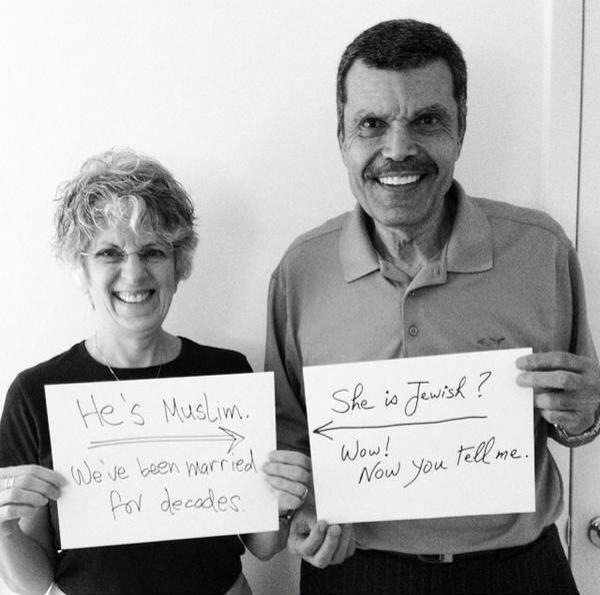 He's Muslim.
We've been married
for decades.
She is Jewish?
Wow!
Now you tell me.